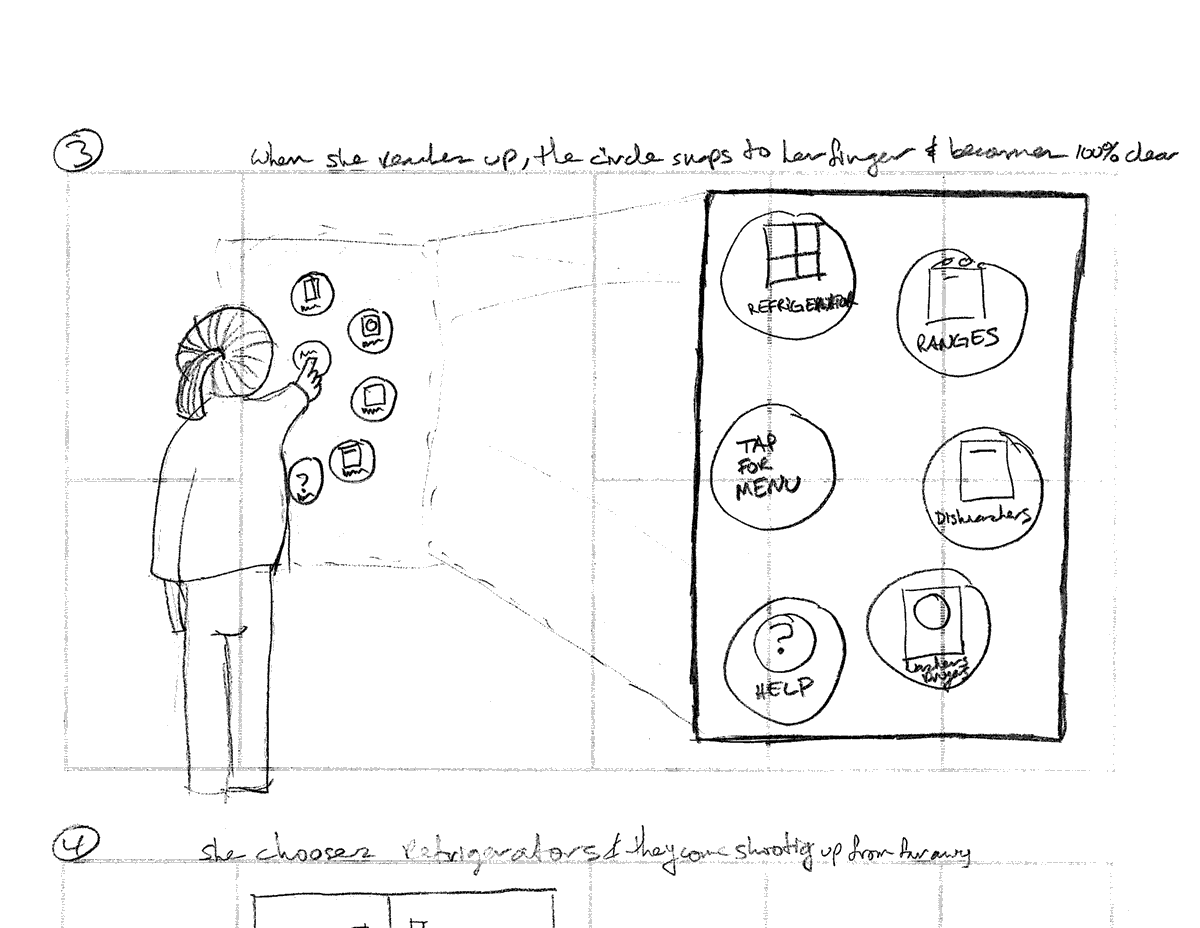 3
when she reaches up, the circle snaps to her finger & becomes 100% clear
REFRIGERATOR
RANGES
TAP
FOR
MENU
Dishwashers
?
?
HELP
washers
Dryers
4
she chooses Refrigerators & they come shooting up from far away